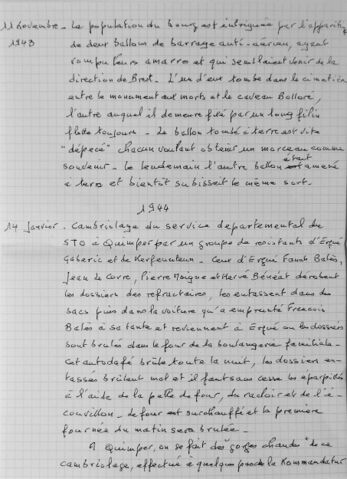 11 novembre - La population du bourg est intriguée par l'apparition
1943 de deux ballons de barrage anti-aérien, ayant
rompu leurs amarres et qui semblaient venir de la
direction de Brest. L'un d'eux tombe dans le cimetière
entre le monument aux morts et le caveau Bolloré,
l'autre auquel il demeure fixé par un long filin
flotte toujours. Le ballon tombé à terre est vite
"dépecé" chacun voulant obtenir un morceau comme
souvenir. Le lendemain l'autre ballon était amené
à terre et bientôt subissait le même sort.
1944
14 Janvier. Cambriolage du service départemental du
STO à Quimper par un groupe de résistants d'Ergué
Gabéric et de Kerfeunteun. Ceux d'Ergué Fanch Balès,
Jean Le Corre, Pierre Jaigne et Hervé Bénéat dérobent
les dossiers des réfractaires, les entassent dans des
sacs puis dans la voiture qu'a empruntée François
Balès à sa tante et reviennent à Ergué où les dossiers
sont brulés dans le four de la boulangerie familiale.
Cet autodafé brûle toute la nuit, les dossiers en-
tassés brûlent mal et il faut sans cesse les éparpiller
à l'aide de la pelle du four, du racloir et de l'é-
couvillon. Le four est surchauffé et la première
fournée du matin sera brulée.
A Quimper, on se fait des "gorges chaudes" de ce
cambriolage, effectué à quelques pas de la Kommandatur